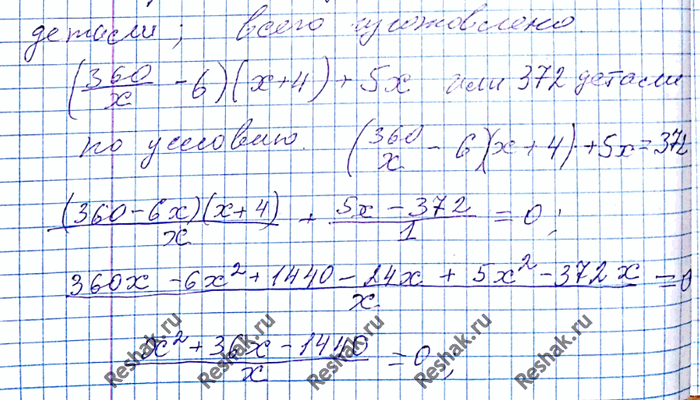 детали; всего изготовлено
(360/x - 6)(x+4) + 5x или 372 детали
по условию. (360/x - 6)(x+4)+5x=372
(360-6x)(x+4)/x + 5x-372/1 = 0;
360x - 6x² + 1440 - 24x + 5x² - 372x/x = 0
x² + 36x - 1440/x = 0;
Reshak.ru Reshak.ru Reshak.ru Reshak.ru